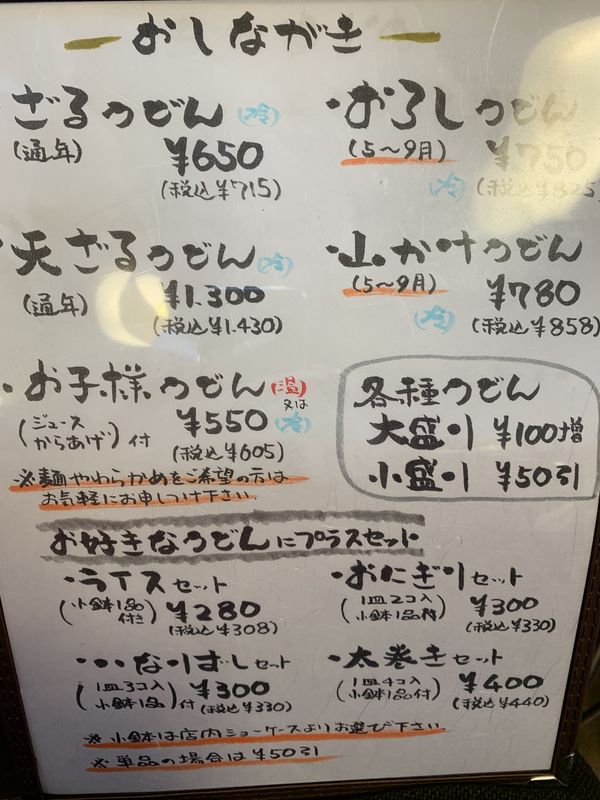 おしながき
ざるうどん (冷)
(通年) ¥650
(税込¥715)
・おろしうどん
(5〜9月) ¥750
(冷) (税込¥825)
天ざるうどん (冷)
(通年) ¥1.300
(税込¥1.430)
・山かけうどん
(5〜9月) ¥780
(冷) (税込¥858)
・お子様うどん (温)又は(冷)
(ジュース からあげ)付 ¥550
(税込¥605)
※麺やわらかめをご希望の方は
お気軽にお申しつけ下さい.
各種うどん
大盛り ¥100増
小盛り ¥50引
お好きなうどんにプラスセット
・ライスセット
(小鉢1品付き) ¥280
(税込¥308)
・おにぎりセット
(1皿2コ入 小鉢1品付) ¥300
(税込¥330)
・いなりずしセット
(1皿3コ入 小鉢1品付) ¥300
(税込¥330)
・太巻きセット
(1皿4コ入 小鉢1品付) ¥400
(税込¥440)
※小鉢は店内ショーケースよりお選び下さい.
※単品の場合は¥50引